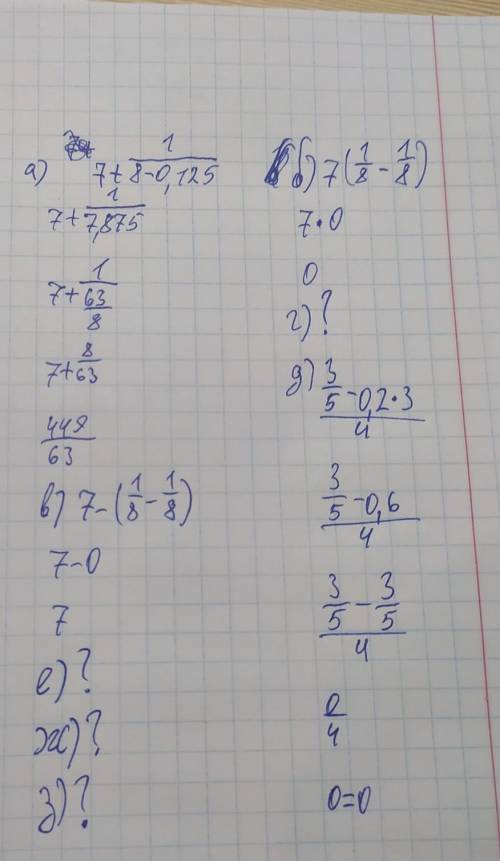 а) 7+ 1/(8-0,125)
7+ 1/7,875
7+ 1/(63/8)
7+ 8/63
449/63
в) 7-(1/8-1/8)
7-0
7
е)?
ж)?
з)?
б) 7(1/8-1/8)
7•0
0
г)?
д) (3/5-0,2•3)/4
(3/5-0,6)/4
(3/5-3/5)/4
0/4
0=0